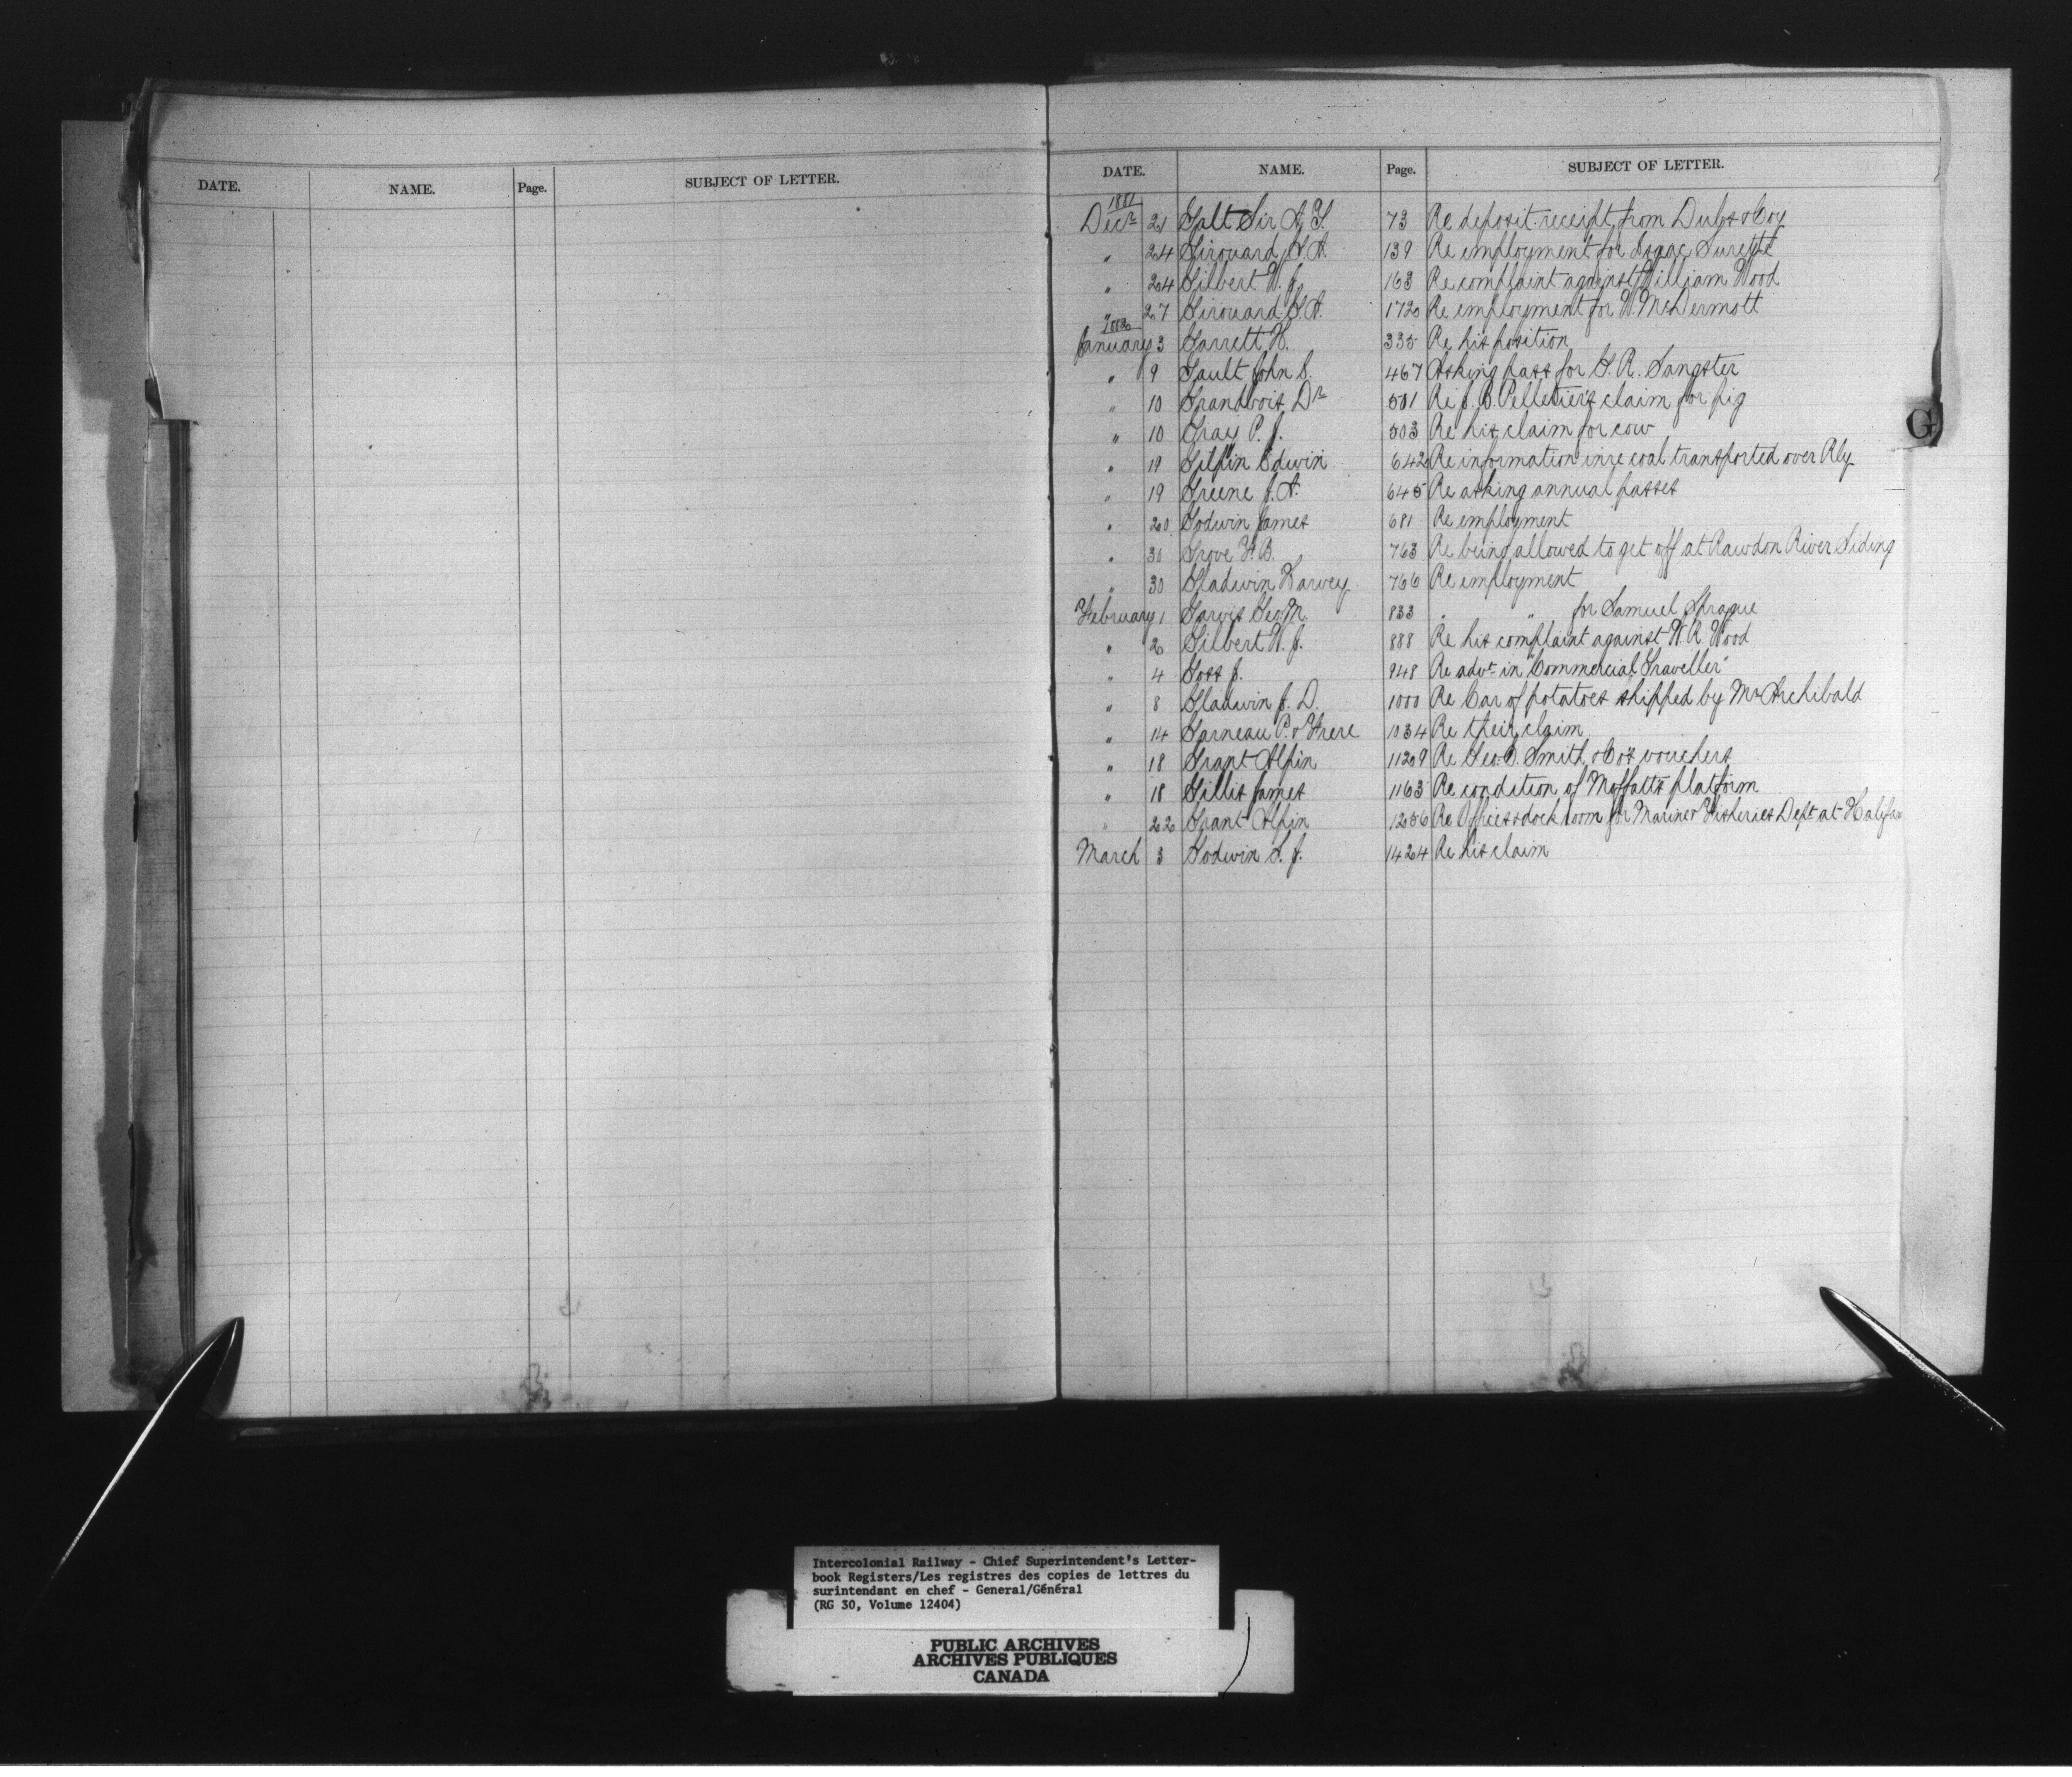 DATE. NAME. Page. SUBJECT OF LETTER.
DATE. NAME. Page. SUBJECT OF LETTER.
1881
Decr 21 Galt Sir A. T. 73 Re deposit receipt from Dubs & Coy
" 24 Girouard G. A. 139 Re employment for Isaac Surette
" 24 Gilbert W. J. 163 Re complaint against William Wood
" 27 Girouard G. A. 172 Re employment for W. McDermott
1882
January 3 Garrett H. 335 Re his position
" 9 Gault John S. 467 Asking pass for G. R. Sangster
" 10 Grandbois Dr 501 Re J. B. Pelletier's claim for pig
" 10 Gray P. J. 503 Re his claim for cow
" 19 Gilpin Edwin 642 Re information in re coal transported over Rly
" 19 Greene J. A. 645 Re asking annual passes
" 20 Godwin James 681 Re employment
" 30 Grove F. B. 763 Re being allowed to get off at Rawdon River Siding
" 30 Gladwin Harvey 766 Re employment
February 1 Garvis Geo. M. 833 " " for Samuel Sprague
" 2 Gilbert W. J. 888 Re his complaint against W. R. Wood
" 4 Goss J. 948 Re advt in "Commercial Traveller"
" 8 Gladwin J. D. 1000 Re Car of potatoes shipped by Mr Archibald
" 14 Garneau P. & Frere 1034 Re their claim
" 18 Grant Alpin 1129 Re Geo. C. Smith & Co's vouchers
" 18 Gillis James 1163 Re condition of Moffatt's platform
" 22 Grant Alpin 1256 Re Offices & dock room for Marine & Fisheries Dept at Halifax
March 3 Godwin S. J. 1424 Re his claim
G
Intercolonial Railway - Chief Superintendent's Letter-
book Registers/Les registres des copies de lettres du
surintendant en chef - General/Général
(RG 30, Volume 12404)
PUBLIC ARCHIVES
ARCHIVES PUBLIQUES
CANADA